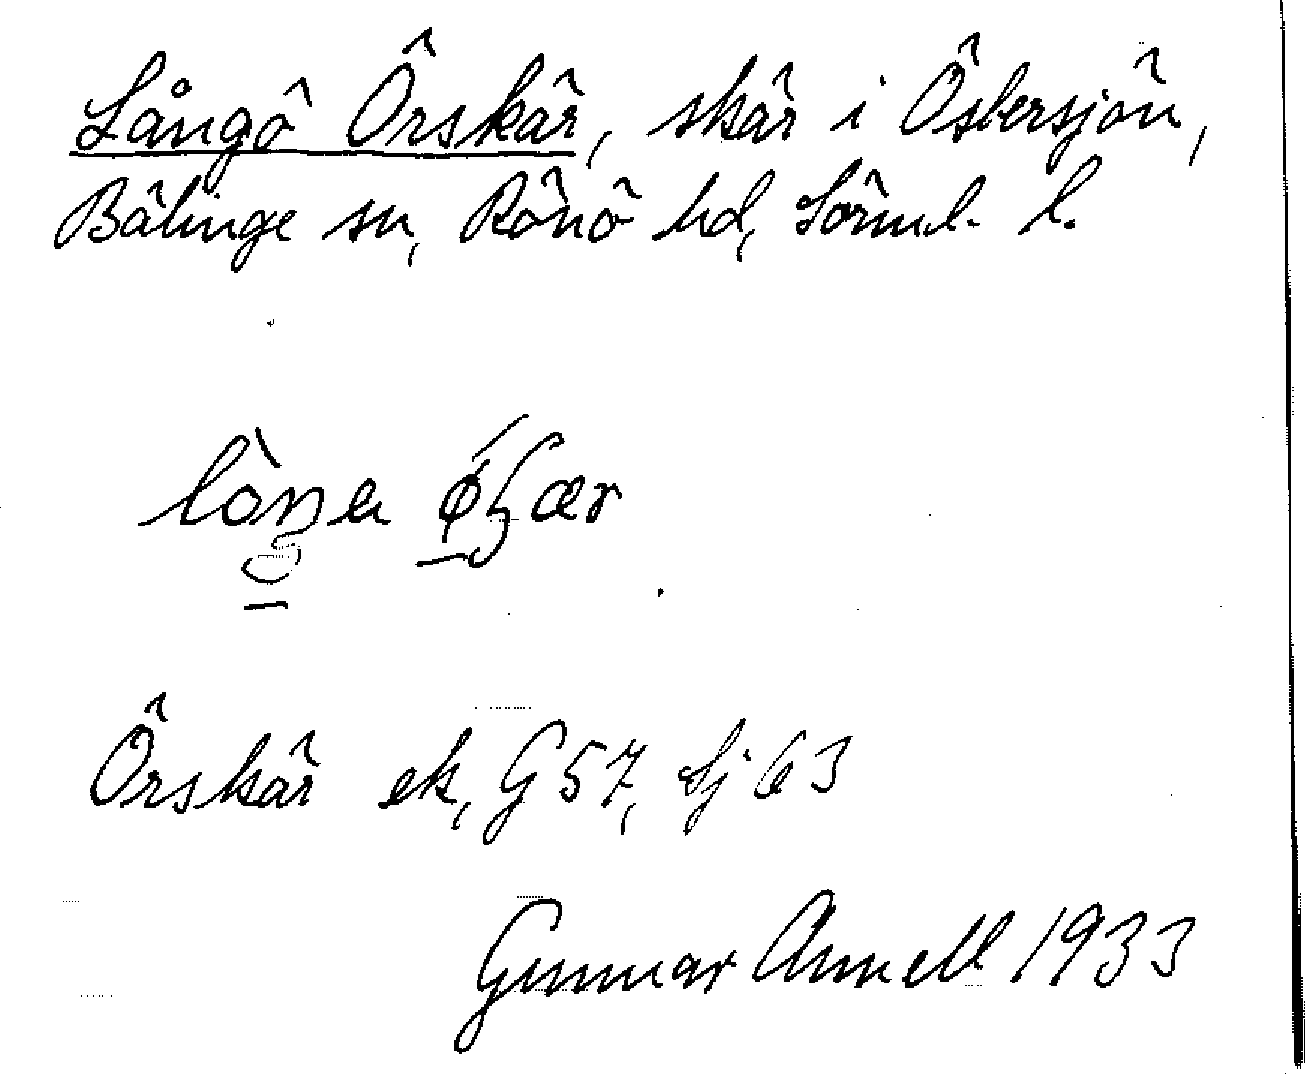 Långö Örskär, skär i Östersjön,
Bälinge sn, Rönö hd, Sörml. l.
Örskär ek, G 57, Sj 63
Gunnar Annell 1933